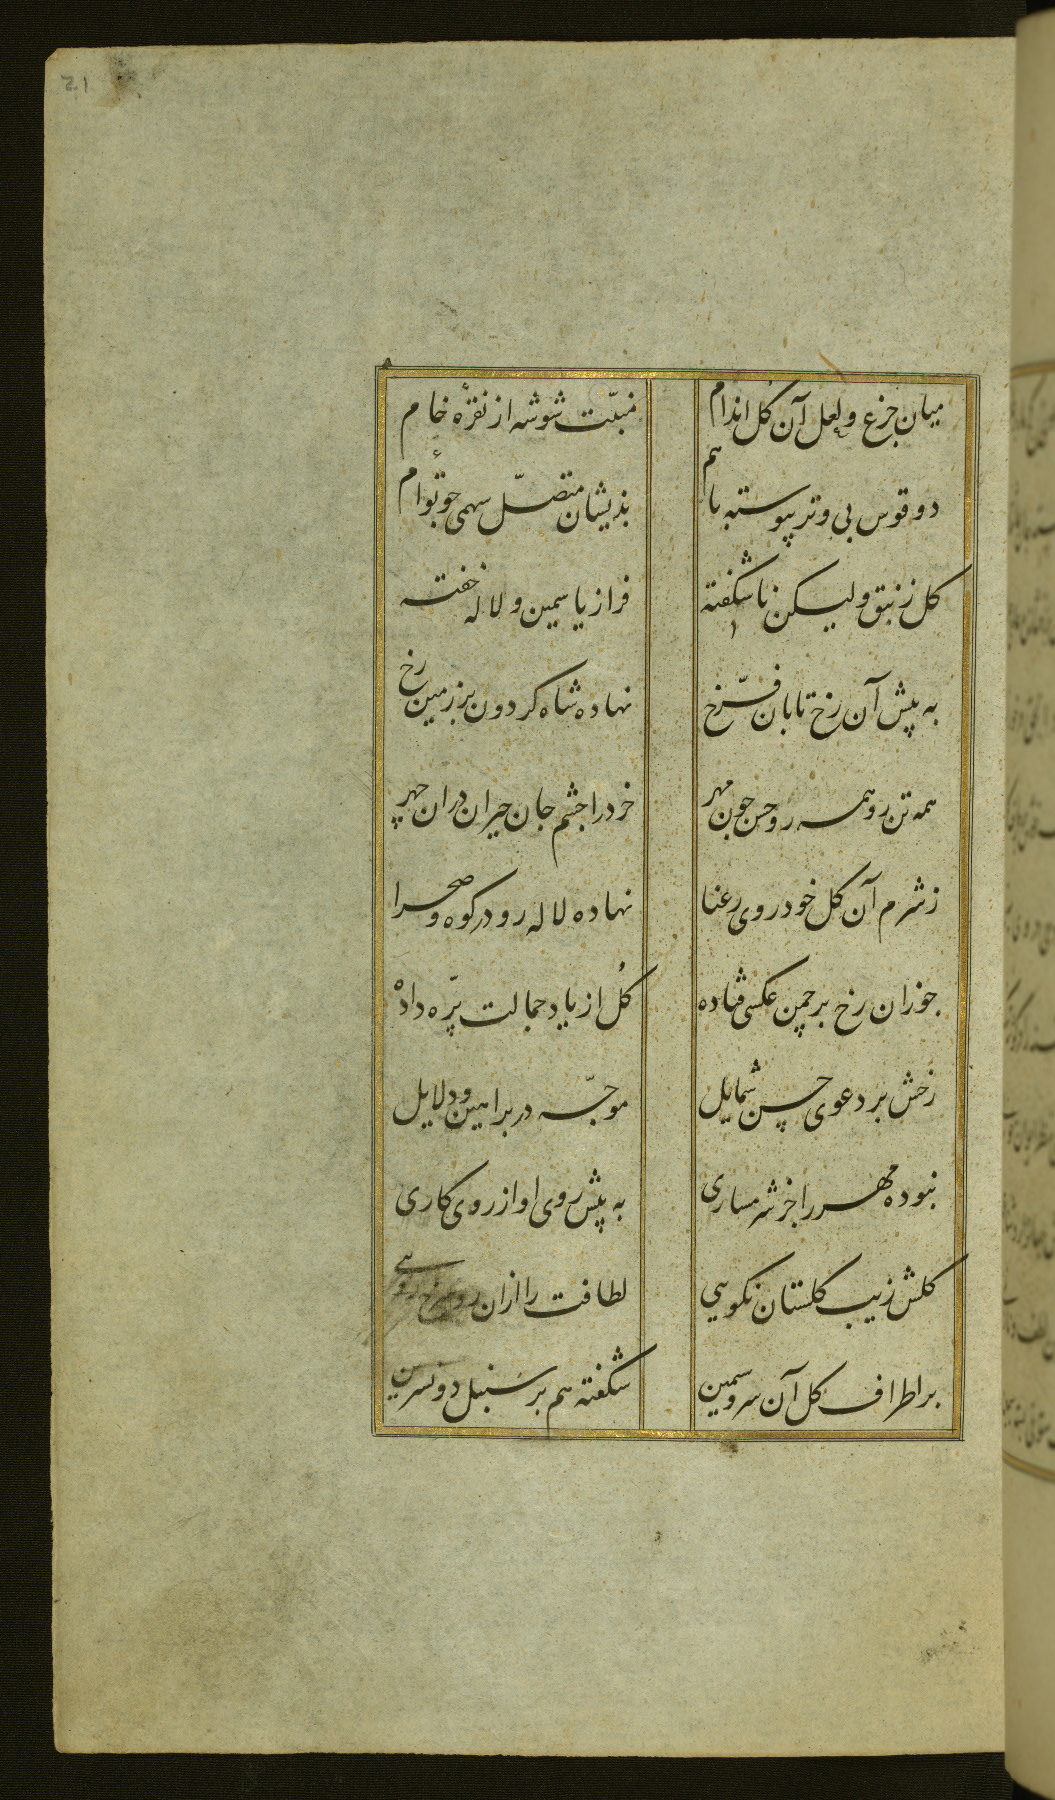 21
میان جزع و لعل آن گل اندام
مثبّت شوشه از نقرهٔ خام
دو قوس بی وتر پیوسته با هم
بذیشان متصّل سهمی چو توأم
کل زنبق ولیکن ناشکفته
فراز یاسمین و لاله خفته
به پیش آن رخ تابان فرّخ
نهاده شاه کردون بر زمین رخ
همه تن رو همه رو حسن چون مهر
خرد را چشم جان حیران دران چهر
ز شرم آن کل خود روی رعنا
نهاده لاله رو در کوه و صحرا
چو زان رخ بر چمن عکسی فتاده
کُل از یاد جمالت پرّه داده
رخش بر دعوی حسن شمایل
موجّه در براهین و دلایل
نبوده مهر را جز شرمساری
به پیش روی او از روی کاری
کلش زیب کلستان نکویی
لطافت را ازان
بر اطراف کل آن سرو سمین
شکفته هم بر سنبل دو نسرین